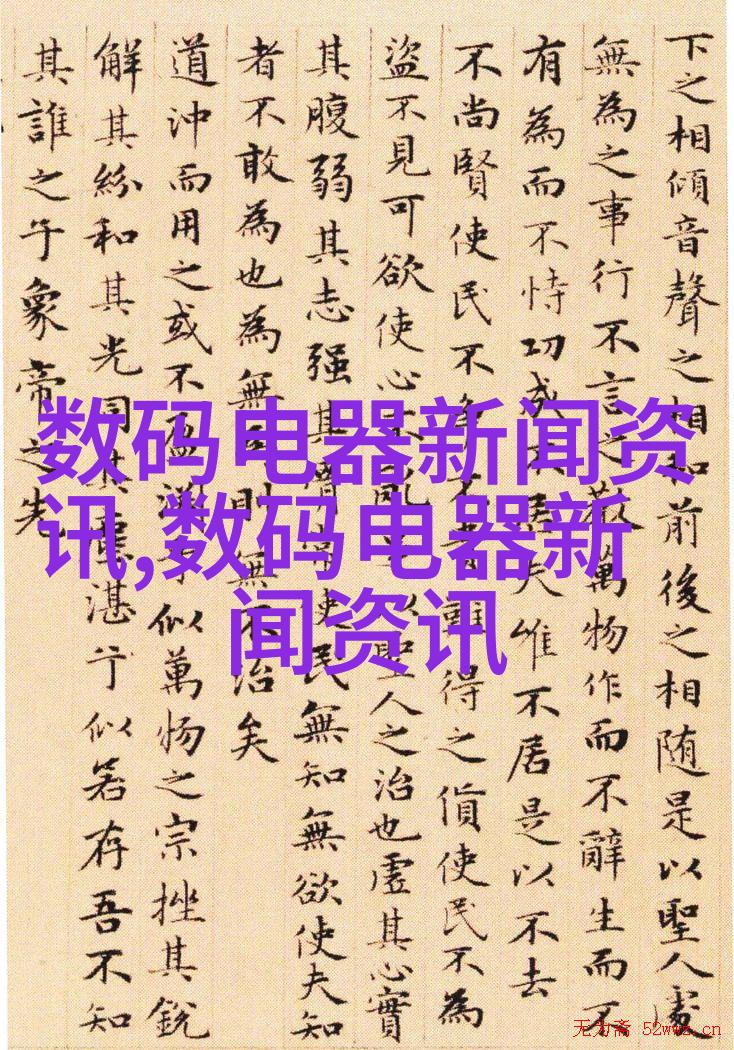 下之相傾音聲之相和前後之相随是以聖人處
無為之事行不言之教萬物作而不辭生而不
有為而不恃功成不居夫唯不居是以不去
不尚賢使民不争不貴難得之貨使民不為
盜不見可欲使心不亂是以聖人之治也虛其心實
其腹弱其志强其骨常使民無知無欲使夫知
者不敢為也為無為則無不治矣
道沖而用之或不盈淵乎似萬物之宗挫其銳
解其紛和其光同其塵湛兮似若存吾不知
其誰之子象帝之先
数码电器新闻资
讯,数码电器新
闻资讯
无为斋 52wwz.cn